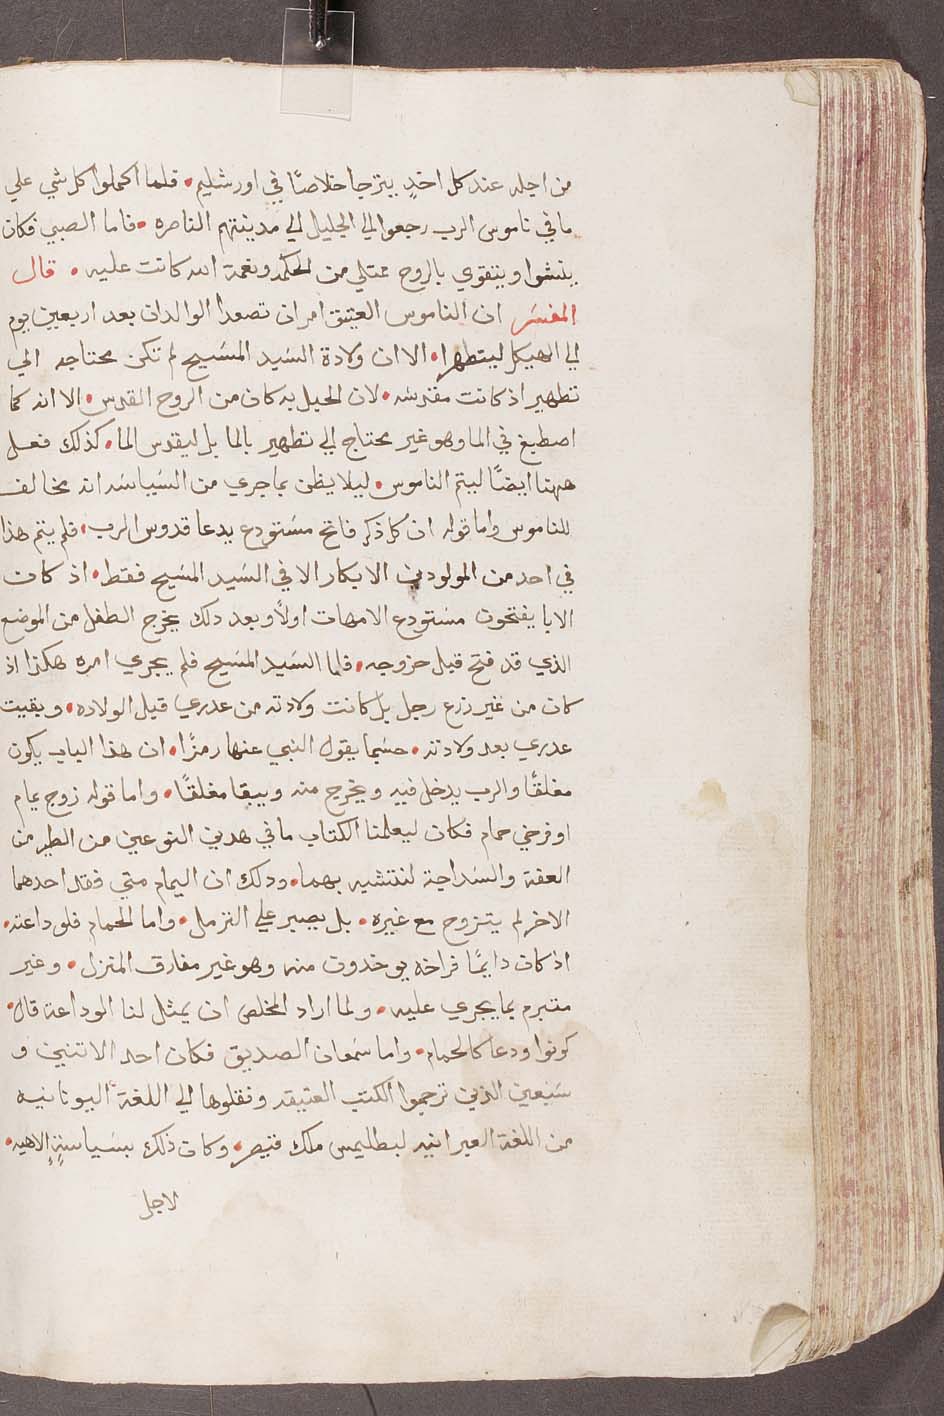 من اجله عند كل احدٍ يترجا خلاصًا في اورشليم • فلما اكملوا كل شي علي
ما في ناموس الرب رجعوا الي الجليل الي مدينتهم الناصره • فاما الصبي فكان
ينشوا ويتقوي بالروح ممتلي من الحكمه ونعمة الله كانت عليه • قال
المفسر ان الناموس العتيق امر ان تصعدا الوالدان بعد اربعين يوم
الي الهيكل ليتطهرا • الا ان ولادة السيد المسيح لم تكن محتاجه الي
تطهير اذ كانت مقدسه • لان الحبل به كان من الروح القدس • الا انه كما
اصطبغ في الما وهو غير محتاج الي تطهير بالما بل ليقدس الما • كذلك فعل
ههنا ايضًا ليتم الناموس • ليلا يظن بما جري من السياسه انه مخالف
للناموس واما قوله ان كل ذكر فاتح مستودع يدعا قدوس الرب • فلم يتم هذا
في احد من المولودين الابكار الا في السيد المسيح فقط • اذ كان
الابا يفتحون مستودع الامهات اولًا وبعد دلك يخرج الطفل من الموضع
الذي قد فتح قبل خروجه • فاما السيد المسيح فلم يجري امره هكذا اذ
كان من غير زرع رجل بل كانت ولادته من عدري قبل الولاده • وبقيت
عدري بعد ولادته • حسبما يقول النبي عنها رمزًا • ان هذا الباب يكون
مغلقًا والرب يدخل فيه ويخرج منه ويبقا مغلقًا • واما قوله زوج يمام
او فرخي حمام فكان ليعلمنا الكتاب ما في هدين النوعين من الطير من
العفة والسداجة لنتشبه بهما • ودلك ان اليمام متي فقد احدهما
الاخر لم يتزوج مع غيره • بل يصبر علي الترمل • واما الحمام فلوداعته •
اذ كان دايمًا فراخه يوخدون منه وهو غير مفارق المنزل • وغير
متبرم بما يجري عليه • ولما اراد المخلص ان يمثل لنا الوداعة قال •
كونوا ودعا كالحمام • واما سمعان الصديق فكان احد الاتنين و
سبعين الذين ترجموا الكتب العتيقه ونقلوها الي اللغة اليونانيه
من اللغة العبرانيه لبطليمس ملك مصر • وكان ذلك بسياسةٍ الاهيه •
لاجل